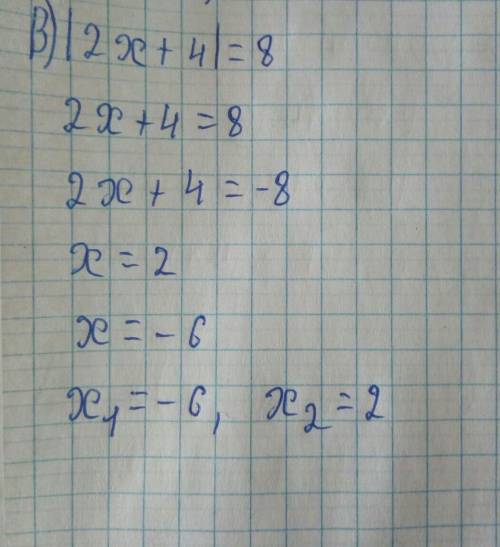 В) |2x + 4| = 8
2x + 4 = 8
2x + 4 = -8
x = 2
x = - 6
x₁ = - 6, x₂ = 2